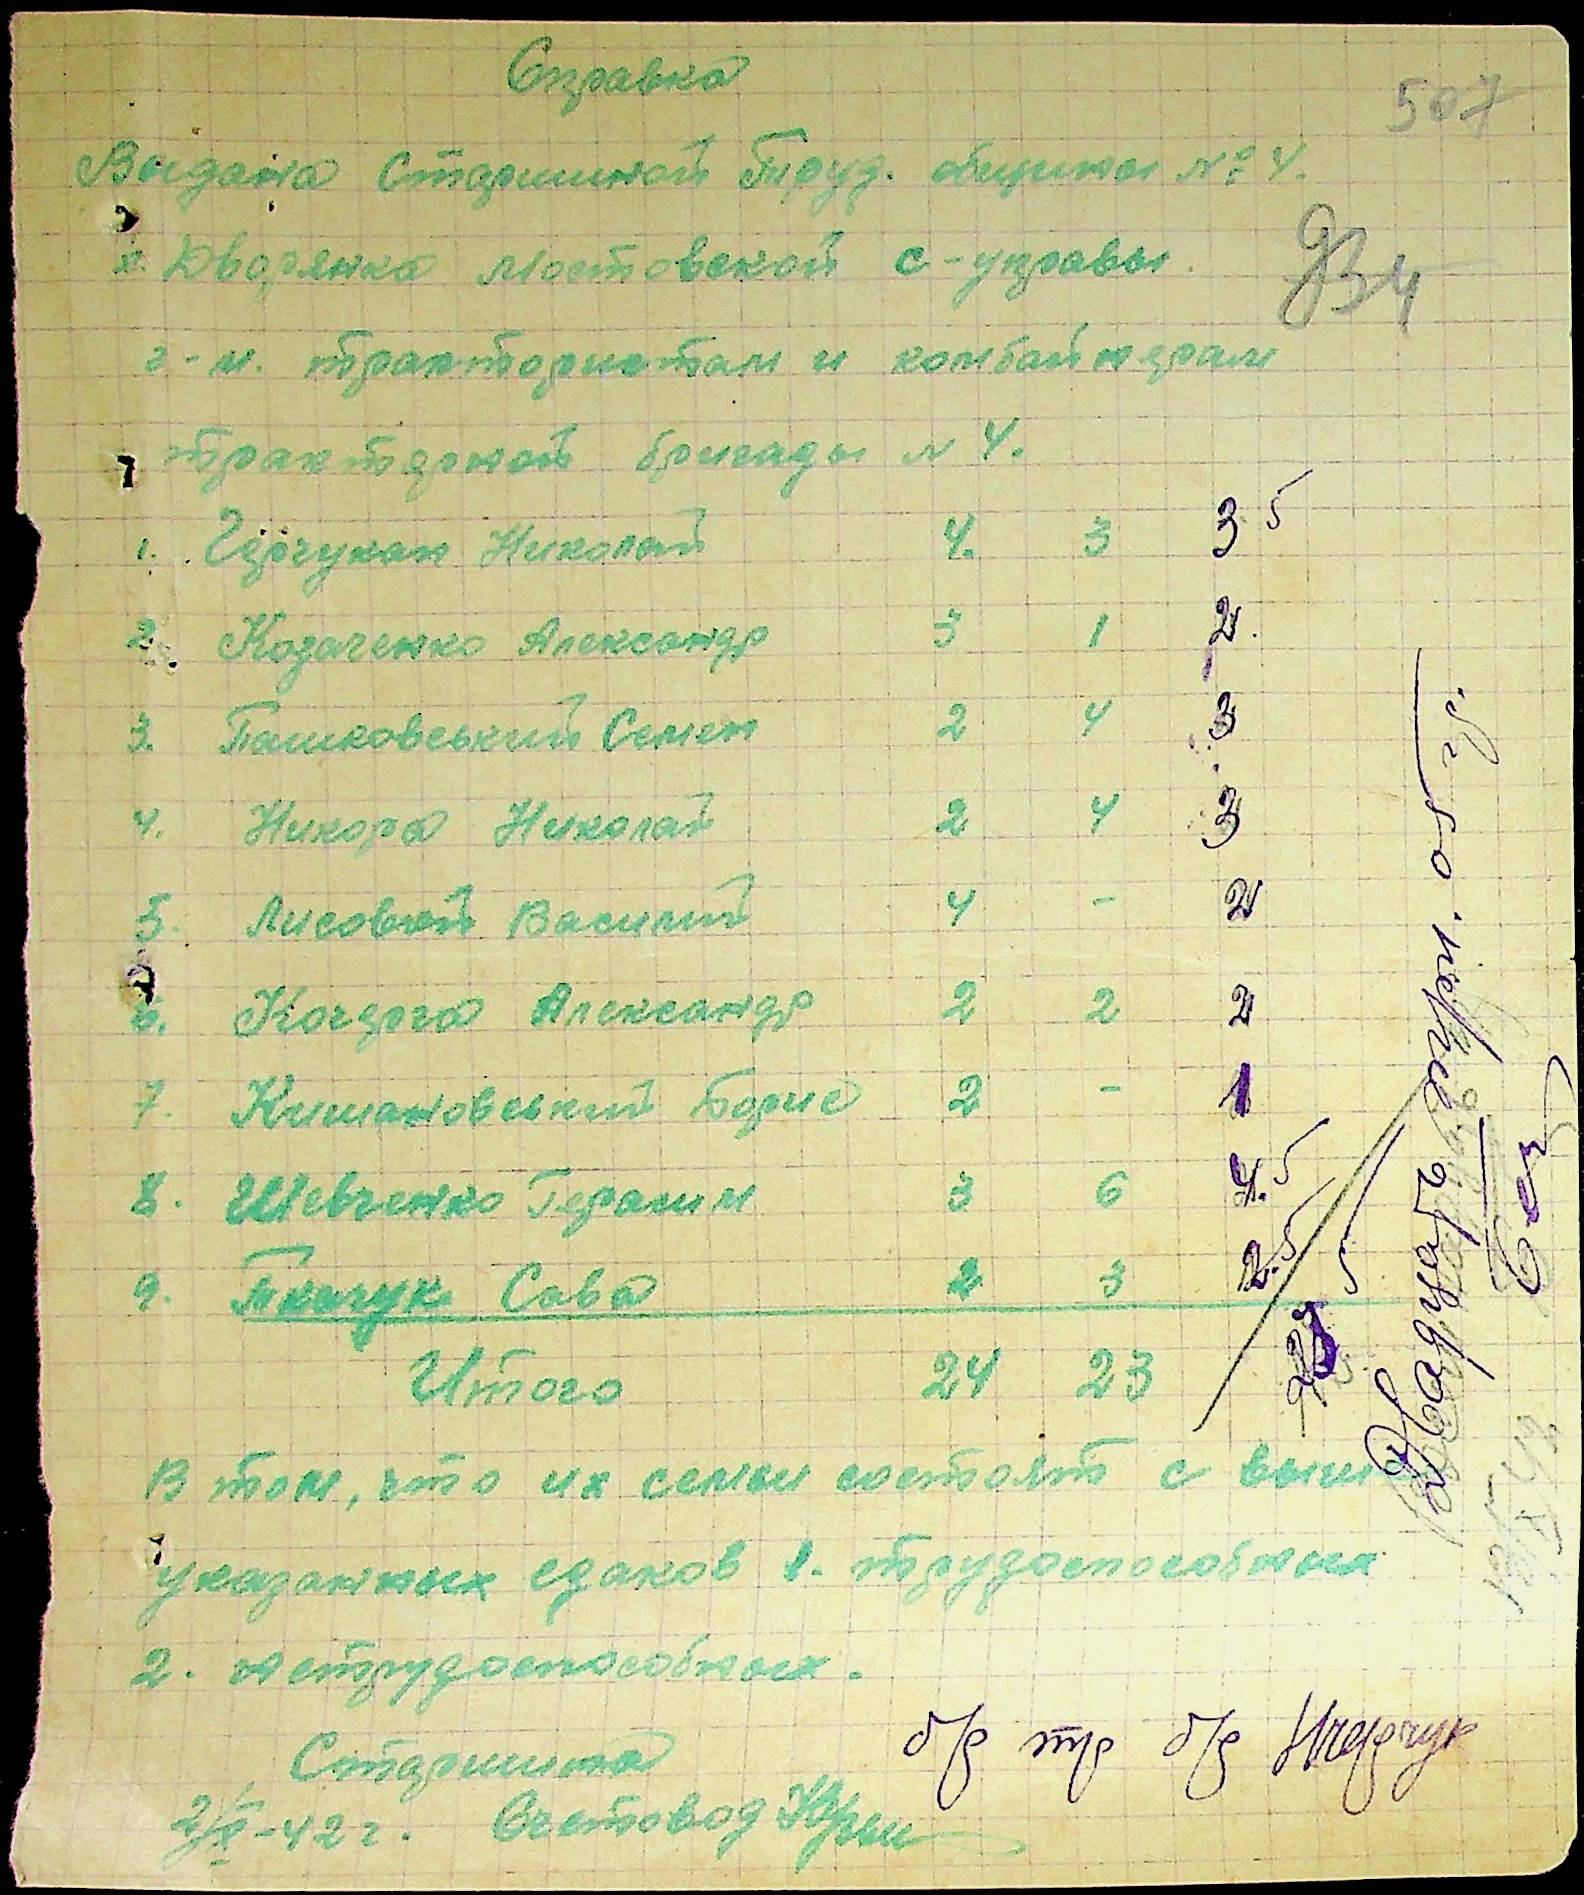 Справка
507
Выдана Старшиной Труд. общины № 4.
х. Дворянка Мостовской с-управы
г-м. трактористам и комбайнерам
тракторной бригады N 4.
1. Николай 4. 3 3 5
2. Козаченко Александр 3 1 2.
3. Пашковський Семен 2 4 3
4. Никора Николай 2 4 3
5. Лисовой Василий 4 - 2
6. Кочерга Александр 2 2 2
7. Кимановський Борис 2 - 1
8. Шевченко Герасим 3 6 4.5
9. Ткачук Сава 2 3 2.5
Итого 24 23
В том, что их семьи состоят с выше
указанных едаков 1. трудоспособных
2. нетрудоспособных.
Старшина
бр тр бр
2/X-42 г. Счетовод